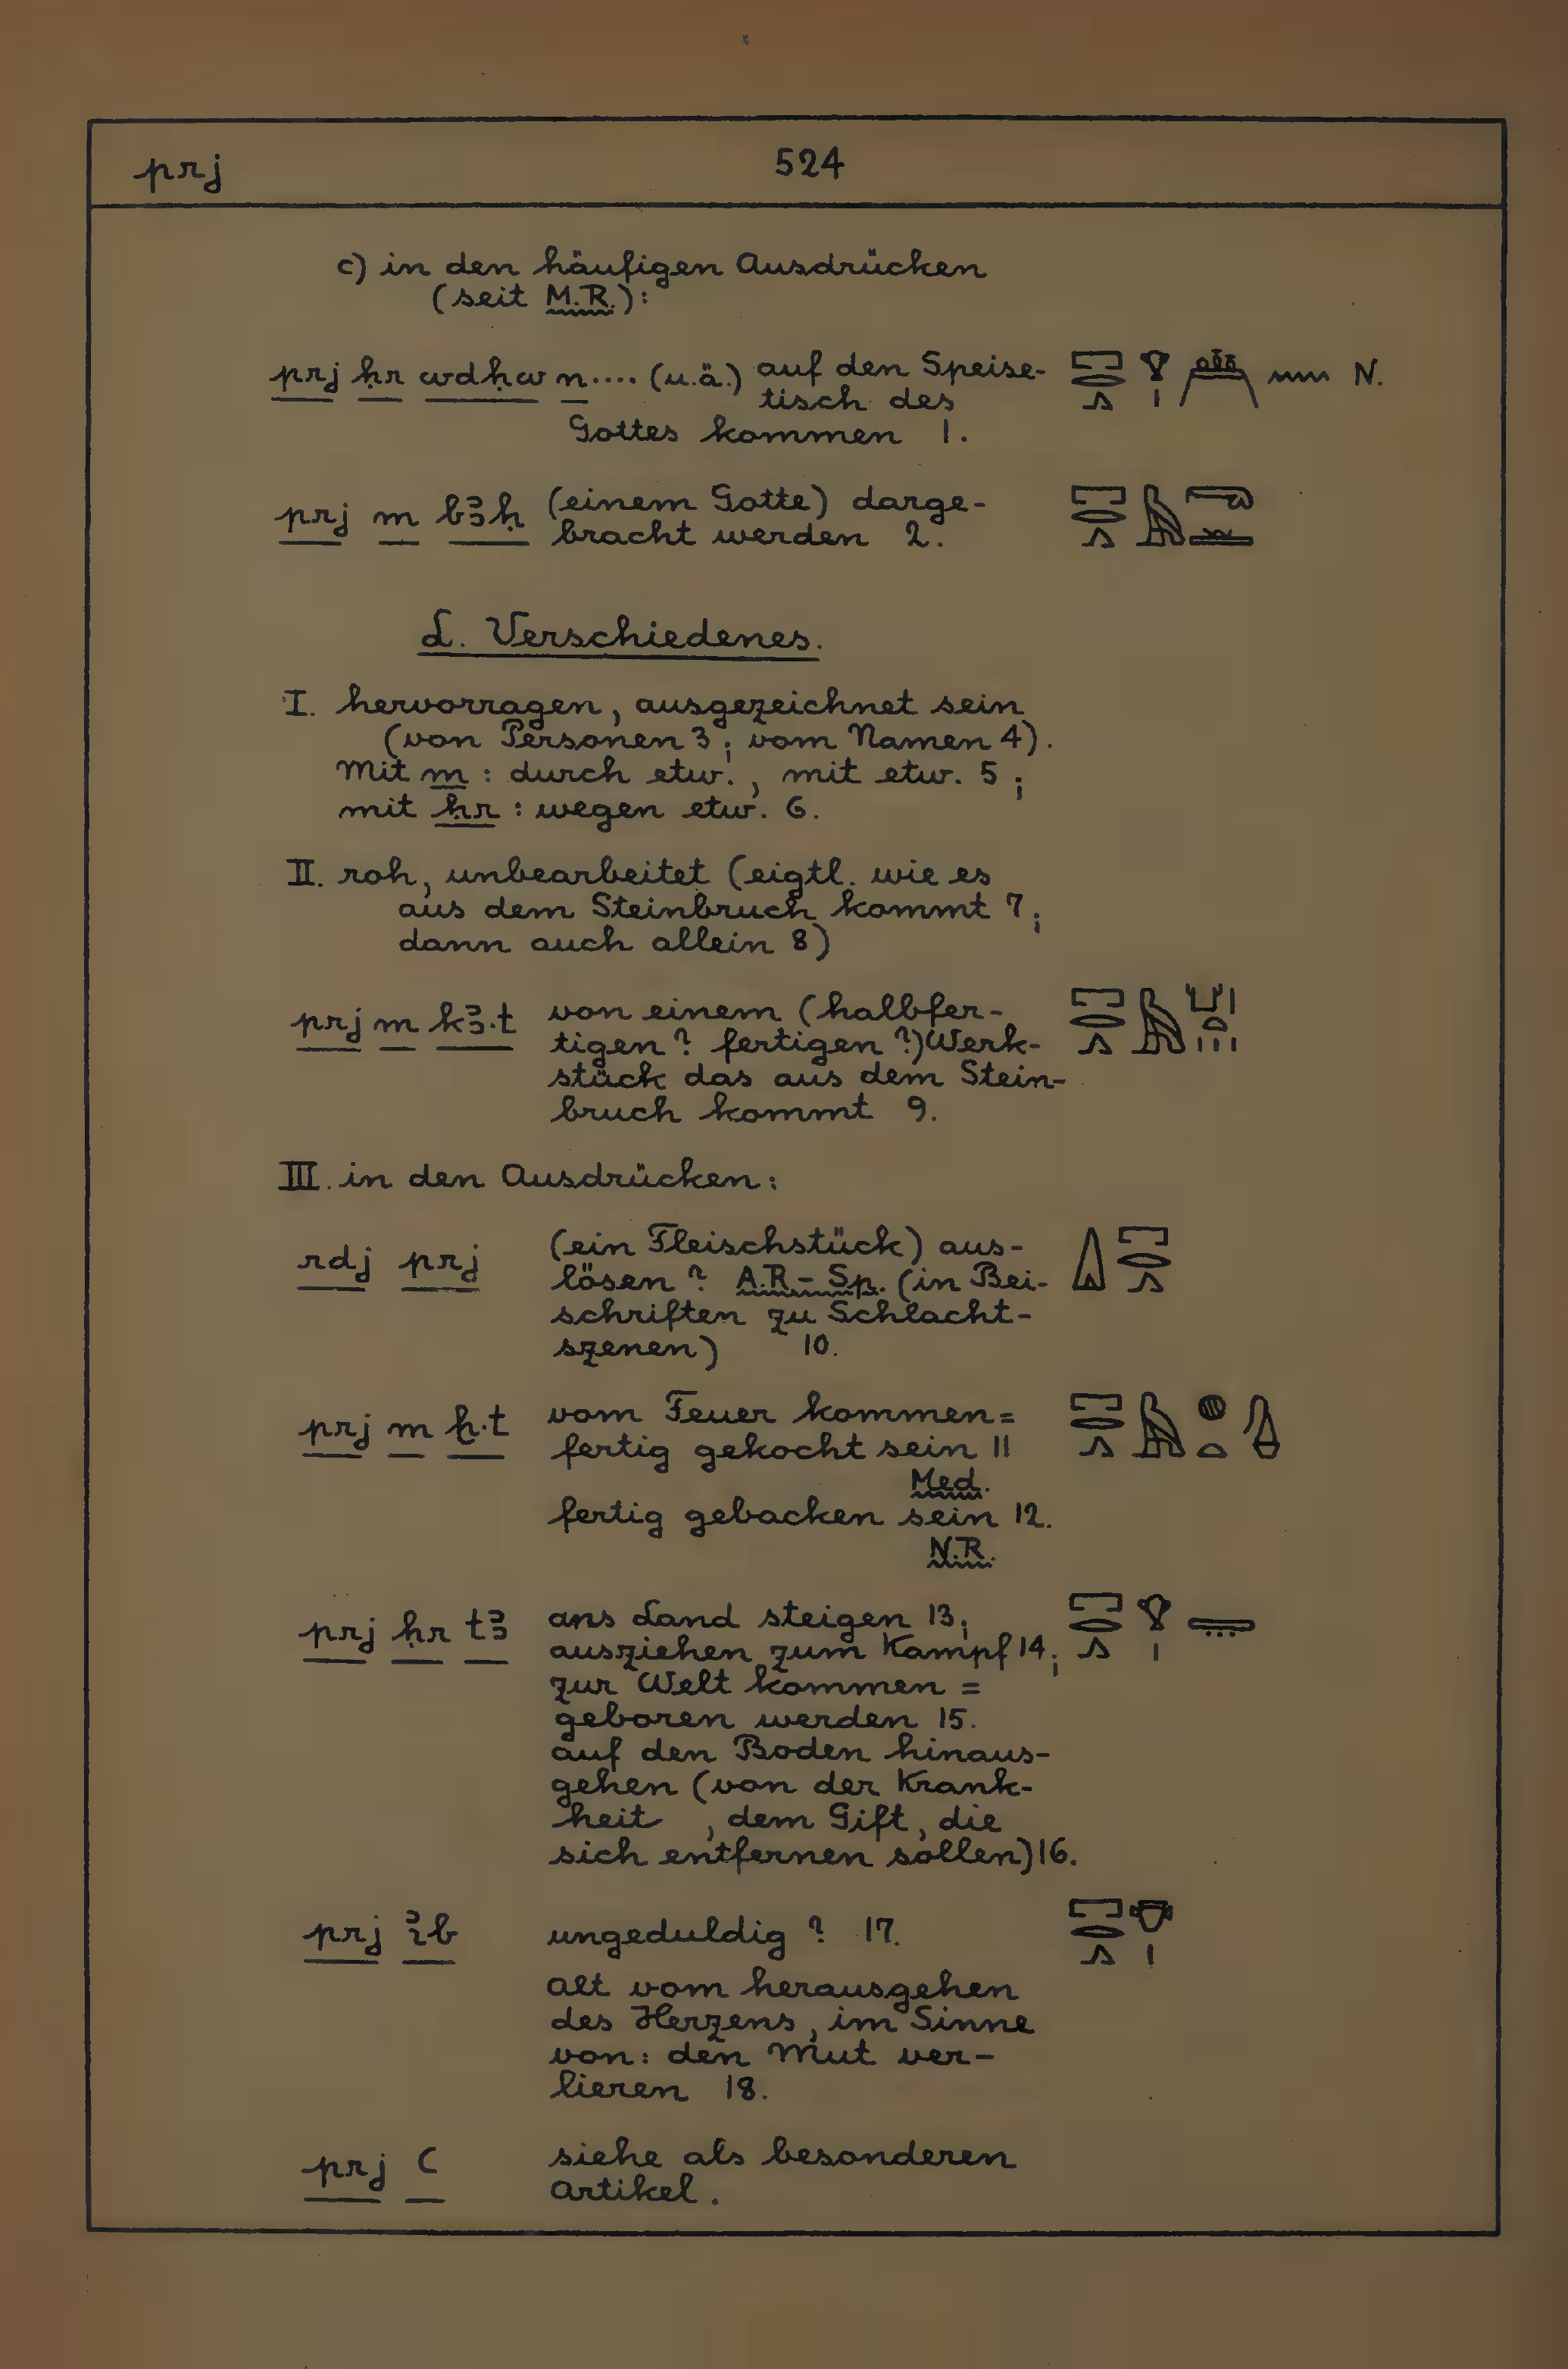 prj 524
c) in den häufigen Ausdrücken
(seit M.R.):
prj ḥr wdḥw n.... (u.ä.) auf den Speise- 𓉐𓂋𓂻 𓁷𓏤 𓈖 N.
tisch des
Gottes kommen 1.
prj m bꜣḥ (einem Gotte) darge- 𓉐𓂋𓂻𓅓𓂺𓈇
bracht werden 2.
L. Verschiedenes.
I. hervorragen, ausgezeichnet sein
(von Personen 3; vom Namen 4).
Mit m : durch etw., mit etw. 5;
mit ḥr : wegen etw. 6.
II. roh, unbearbeitet (eigtl. wie es
aus dem Steinbruch kommt 7;
dann auch allein 8)
prj m kꜣ.t von einem (halbfer- 𓉐𓂋𓂻𓅓𓂓𓏤𓏏𓏥
tigen? fertigen?) Werk-
stück das aus dem Stein-
bruch kommt 9.
III. in den Ausdrücken:
rdj prj (ein Fleischstück) aus- 𓙀𓉐𓂋𓂻
lösen? A.R - Sp. (in Bei-
schriften zu Schlacht-
szenen) 10.
prj m ḫ.t vom Feuer kommen= 𓉐𓂋𓂻𓅓𓐍𓏏𓊮
fertig gekocht sein 11
Med.
fertig gebacken sein 12.
N.R.
prj ḥr tꜣ ans Land steigen 13; 𓉐𓂋𓂻𓁷𓏤𓇾
ausziehen zum Kampf 14;
zur Welt kommen =
geboren werden 15.
auf den Boden hinaus-
gehen (von der Krank-
heit , dem Gift, die
sich entfernen sollen) 16.
prj ꞽb ungeduldig ? 17. 𓉐𓂋𓂻𓄣𓏤
alt vom herausgehen
des Herzens, im Sinne
von: den Mut ver-
lieren 18.
prj ꜥ siehe als besonderen
Artikel.